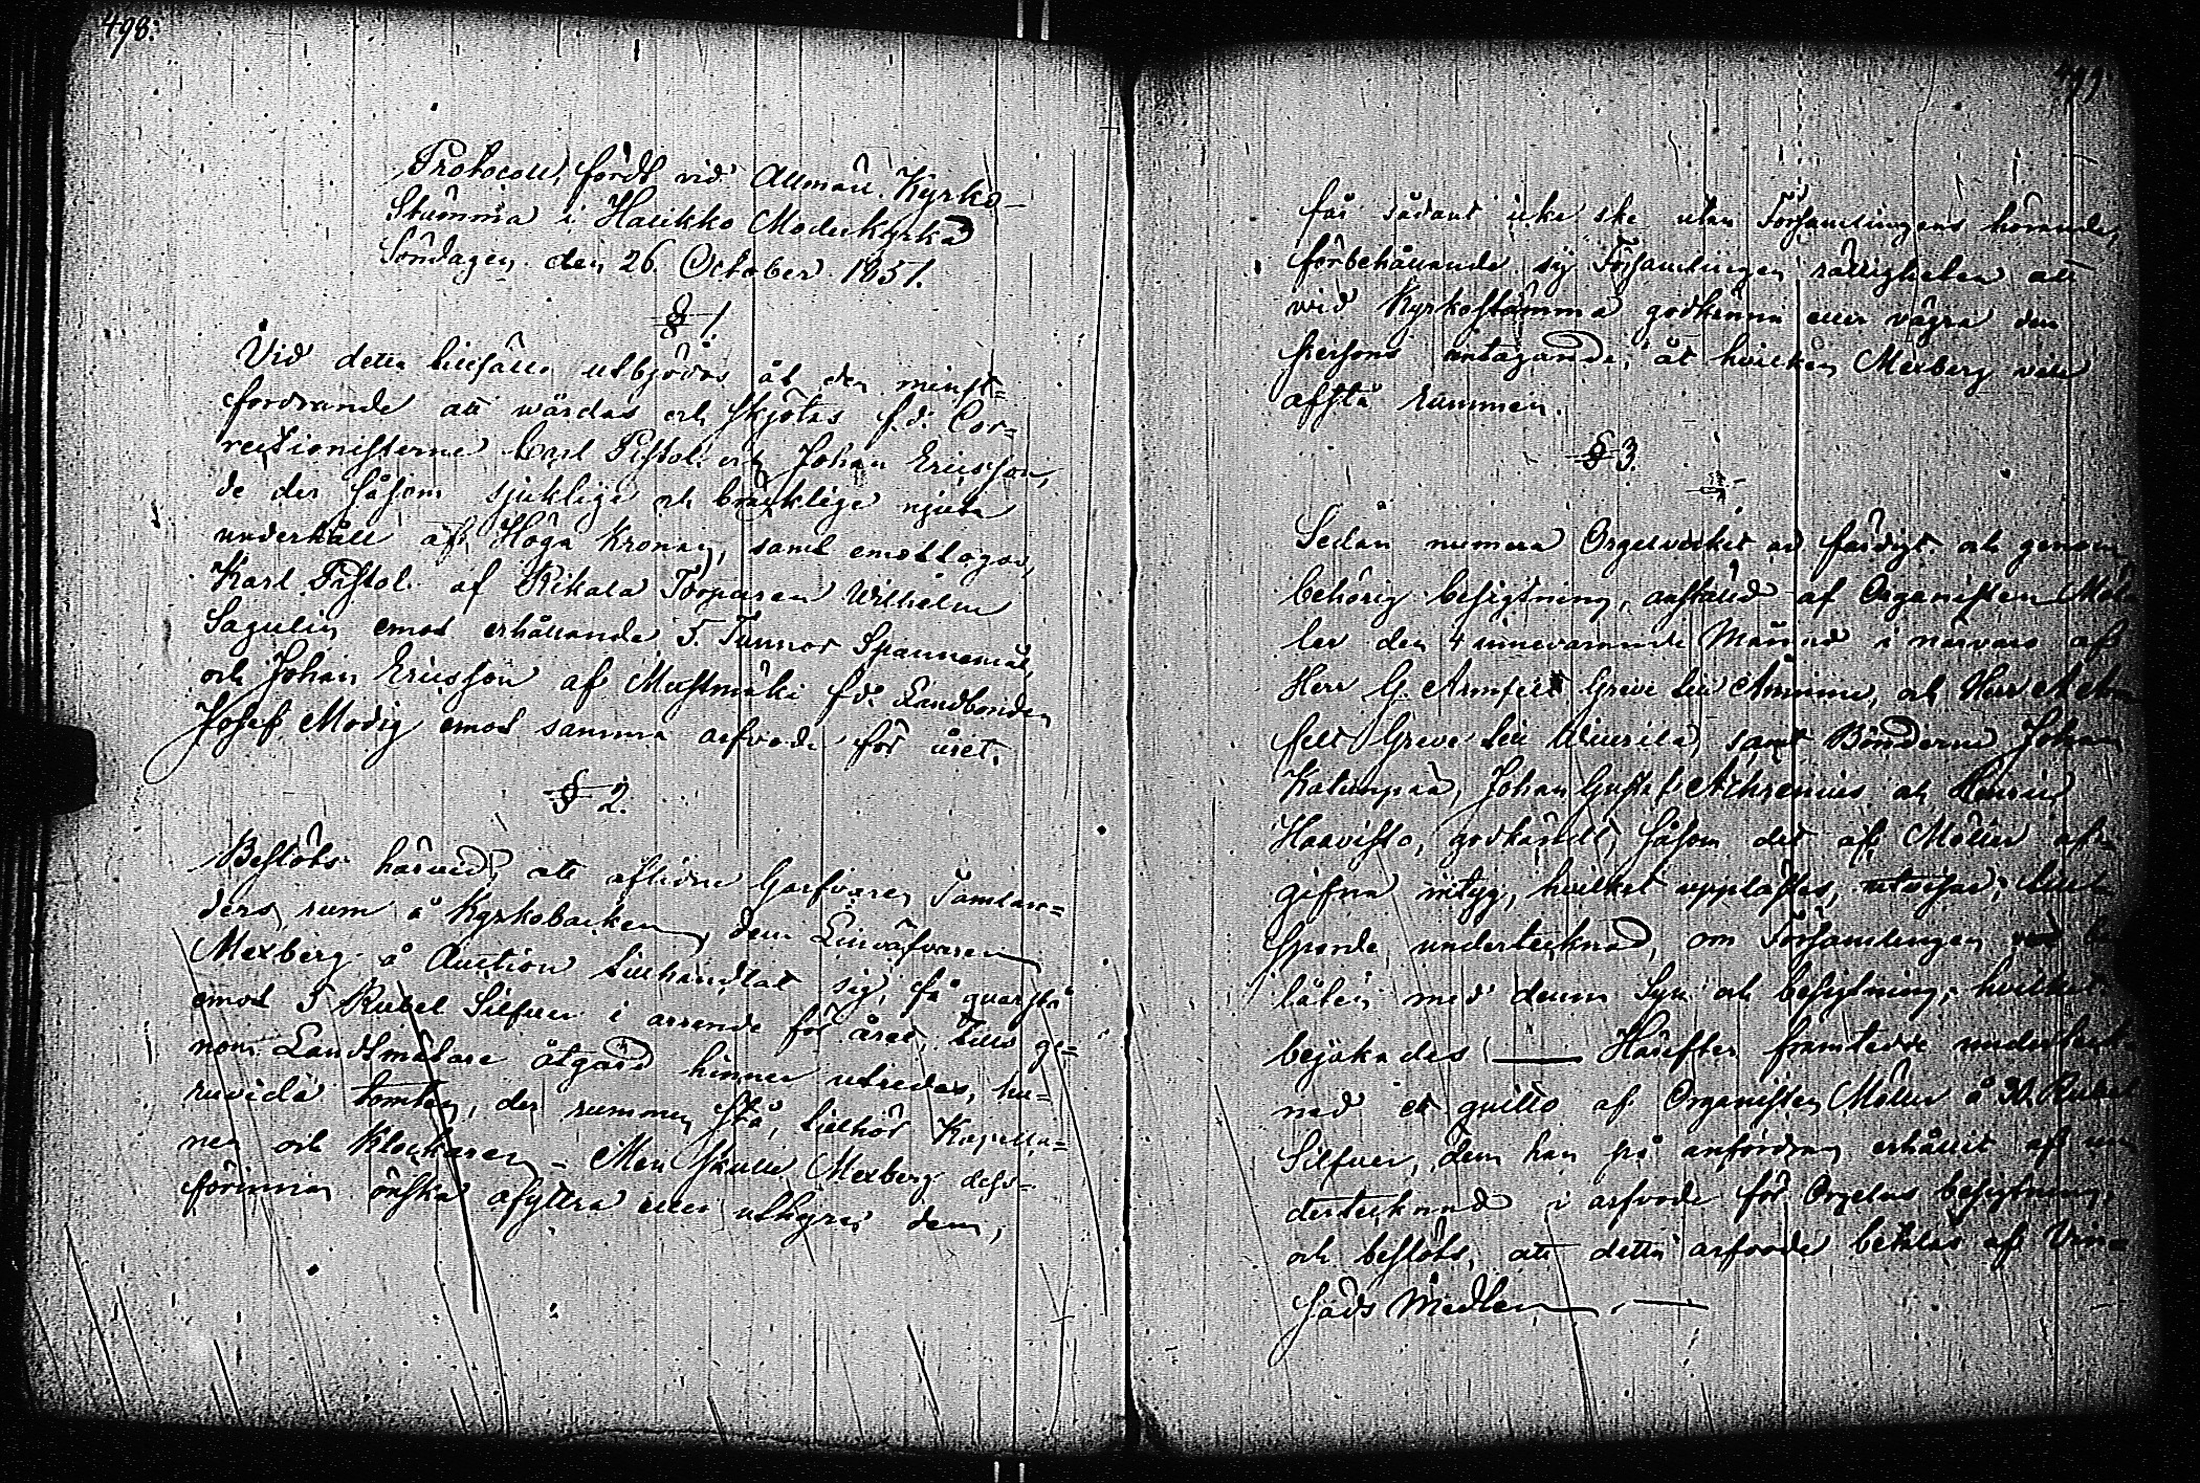 498.
Protocoll, fördt vid Allmän Kyrko-
Stämma i Halikko Moderkyrka
Söndagen den 26. October 1851.
§ 1.
Vid detta tillfälle utbjödos åt den minst=
fordrande att wårdas och skjötas f.d. Cor=
rectionisterne Carl Pistol och Johan Ericsson,
de der såsom sjuklige och bräcklige njuta
underhåll af Höga Kronan, samt emottogos,
Karl Pistol af Rikala Torparen Wilhelm
Sagulin emot erhållande 5. Tunnor Spannemål,
och Johan Ericsson af Mustmäki f.d. Landbonden
Josef Modig emot samma arfvode för året.
§ 2.
Beslöts härvid, att aflidne Garfvaren Tamlan=
ders rum å Kyrkobacken, dem Linväfvaren
Mexberg å Auction tillhandlat sig, få quarstå
emot 5 Rubel Silfver i arrende för året, tills ge=
nom Landtmätare åtgärd hinner utredas, hu=
ruvida tomten, der rummen stå, tillhör Kapella=
nen och Klockaren. - Men skulle Mexberg dess=
förinnan önska afyttra eller uthyra dem,
499
får sådant icke ske utan Församlingens hörande,
förbehållande sig Församlingen rättigheten att
wid Kyrkostämma godkänna eller vägra den
persons antagande, åt hvilken Mexberg vill
afstå rummen.
§ 3.
Sedan numera Orgelverket är färdigt och genom
behörig besigtning, anställd af Organisten Möl=
ler den 4 innevarande Månad i närvaro af
Herr G. Armfelt Greve till Åminne, och Herr
felt Greve till Wiurila, samt Bönderne Johan
Katunpää, Johan Gustaf Achrenius och Henric
Haavisto, godkändt, såsom det af Möller af=
gifna intyg, hvilket upplästes, utvisar,
sporde undertecknad, om Församlingen
låten med denna Syn och besigtning, hvilket
bejakades. — Härefter framtedde underteck=
nad ett quitto af Organisten Möller å 30. Rubel
Silfver, dem han på anfordran erhållit af un=
dertecknad i arfvode för Orgelns besigtning,
och beslöts, att detta arfvode betalas af Vin=
säds Medlen. —